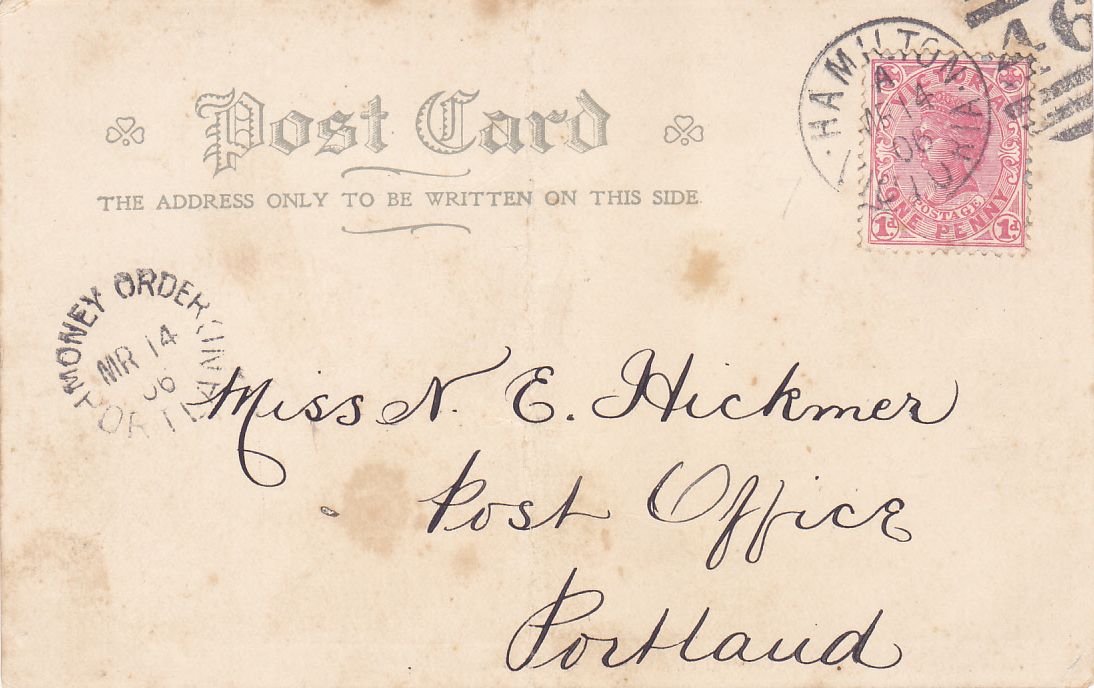 Post Card
THE ADDRESS ONLY TO BE WRITTEN ON THIS SIDE
HAMILTON
A
14
06
VICTORIA
POSTAGE
ONE PENNY
1d. 1d.
MONEY ORDER
MR 14
06
PORTLAND
Miss N. E. Hickmer
Post Office
Portland